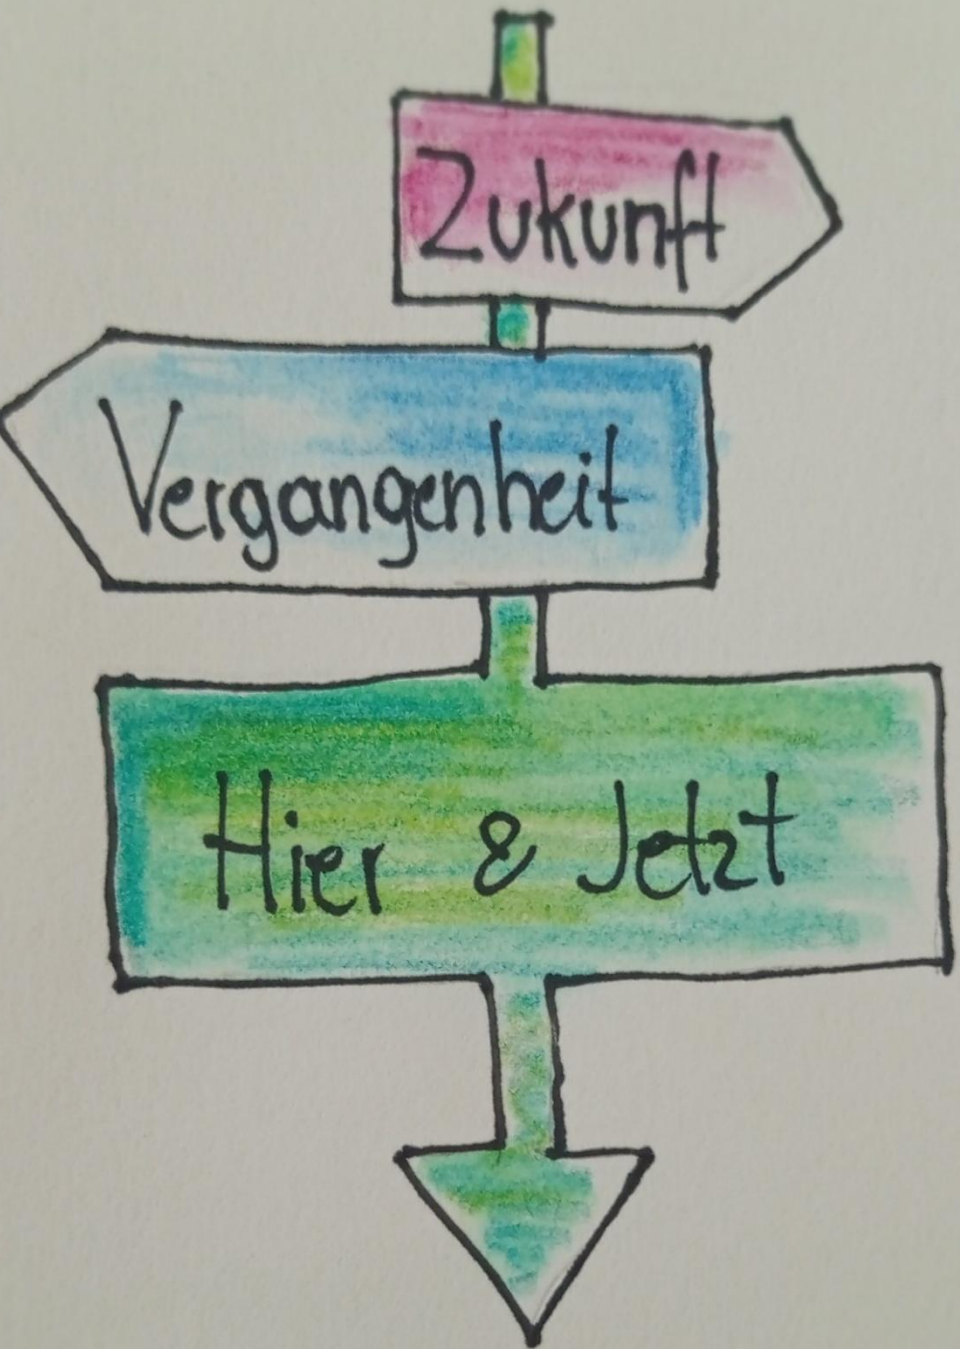 Zukunft
Vergangenheit
Hier & Jetzt